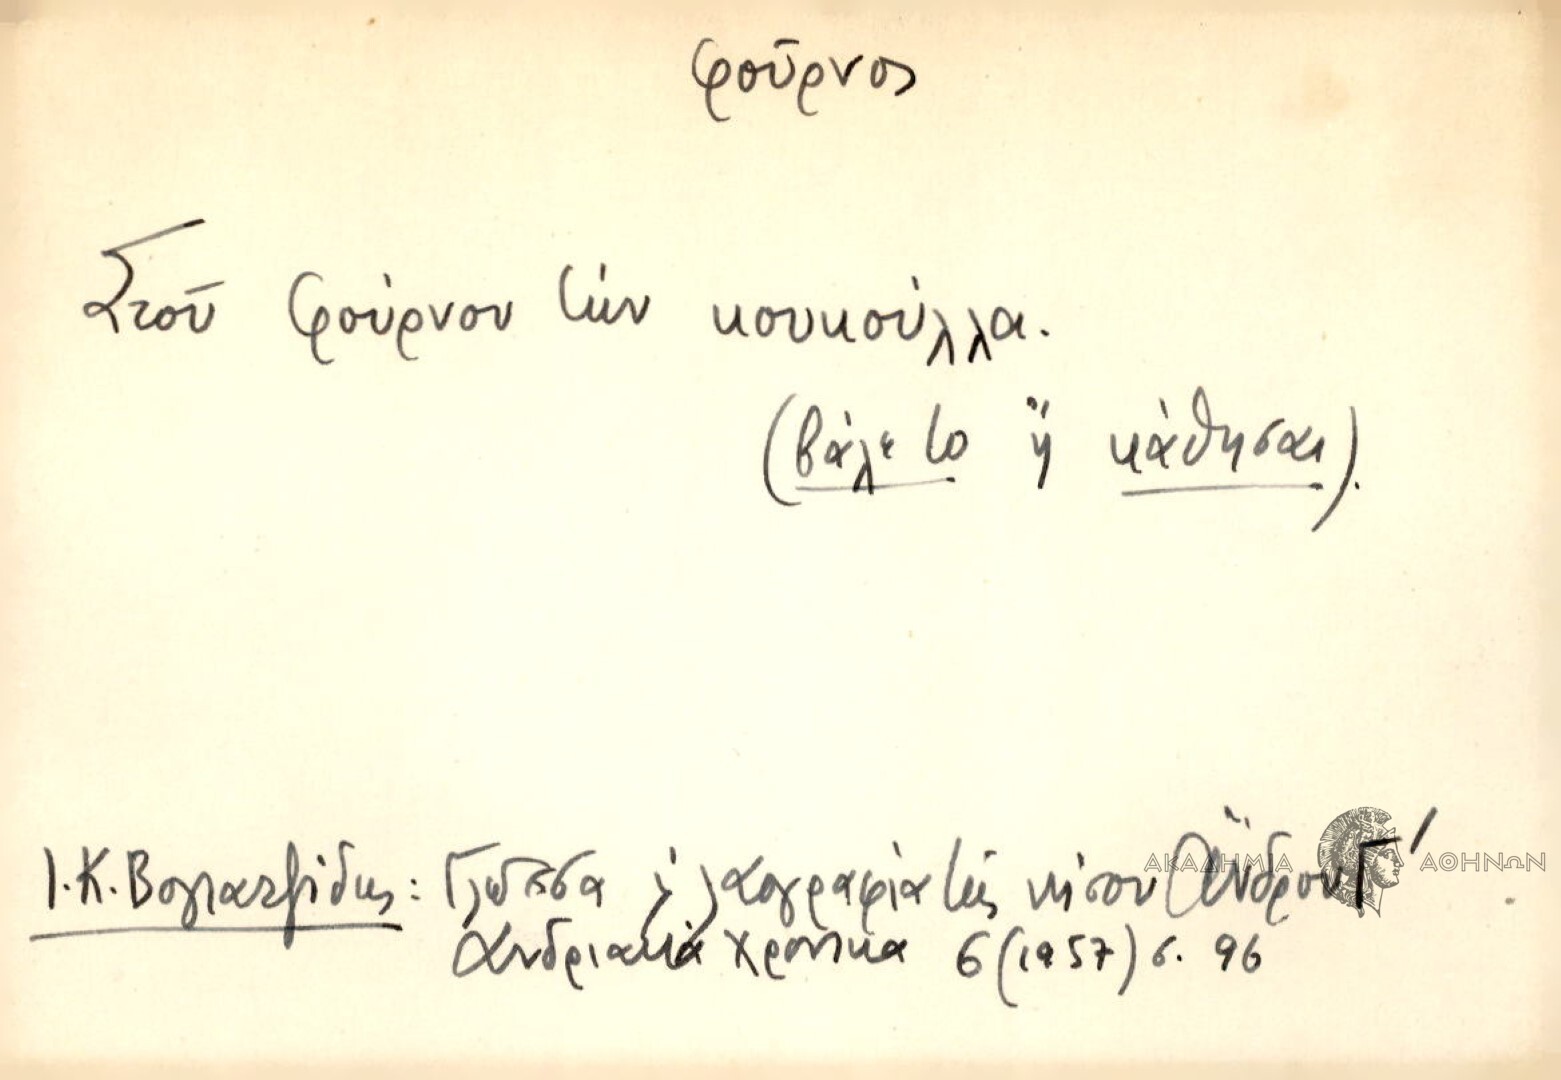 φοῦρνος
Στοῦ φούρνου τὴν κουκούλλα.
(βάλε το ἤ κάθησαι).
Ι.Κ. Βογιατζίδης: Γλῶσσα κ̀ λαογραφία τῆς νήσου Ἄνδρου Γ΄
Ἀνδριακὰ Χρονικα 6 (1957) σ. 96
ΑΚΑΔΗΜΙΑ ΑΘΗΝΩΝ